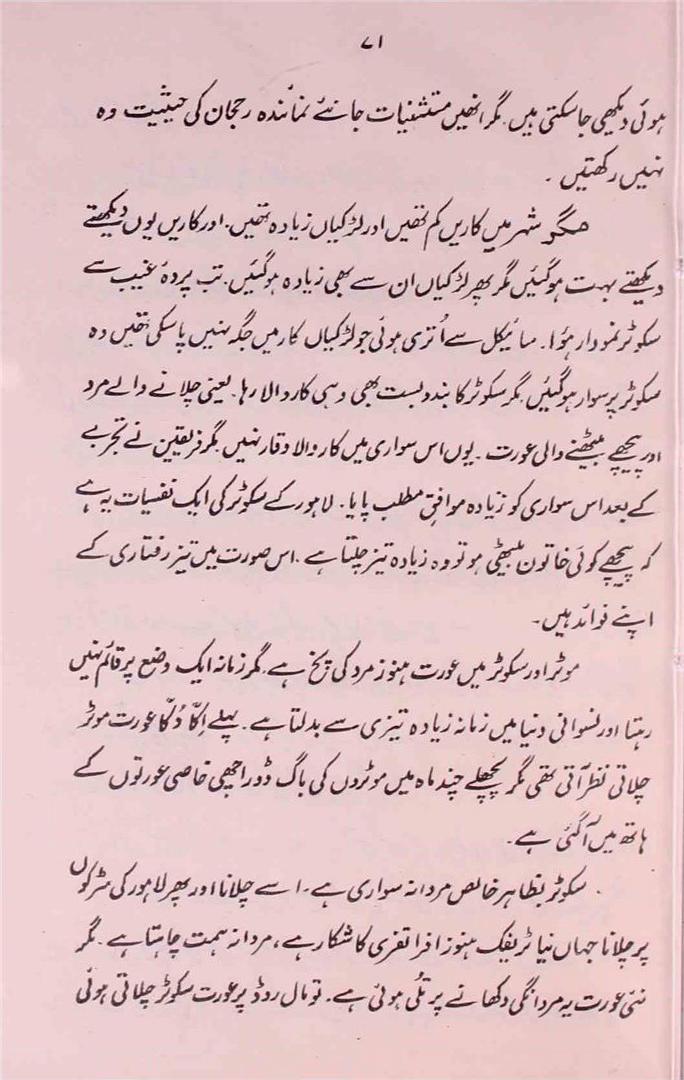 ۷۱
ہوئی دیکھی جا سکتی ہیں۔ مگر انھیں مستثنیات جانئے نمائندہ رجحان کی حیثیت وہ
نہیں رکھتیں ۔
مگر شہر میں کاریں کم تھیں اور لڑکیاں زیادہ تھیں۔ اور کاریں یوں دیکھتے
دیکھتے بہت ہوگئیں مگر پھر لڑکیاں ان سے بھی زیادہ ہوگئیں۔ تب پردۂ غیب سے
سکوٹر نمودار ہوٗا۔ سائیکل سے اُتری ہوئی جو لڑکیاں کار میں جگہ نہیں پا سکی تھیں وہ
سکوٹر پر سوار ہوگئیں۔ مگر سکوٹر کا بندوبست بھی وہی کار والا رہا۔ یعنی چلانے والے مرد
اور پیچھے بیٹھنے والی عورت ۔ یوں اس سواری میں کار والا وقار نہیں۔ مگر فریقین نے تجربے
کے بعد اس سواری کو زیادہ موافقِ مطلب پایا۔ لاہور کے سکوٹر کی ایک نفسیات یہ ہے
کہ پیچھے کوئی خاتون بیٹھی ہو تو وہ زیادہ تیز چلتا ہے ۔ اس صورت میں تیز رفتاری کے
اپنے فوائد ہیں۔
موٹر اور سکوٹر میں عورت ہنوز مرد کی پخ ہے۔ مگر زمانہ ایک وضع پر قائم نہیں
رہتا اور نسوانی دنیا میں زمانہ زیادہ تیزی سے بدلتا ہے۔ پہلے اِکّا دُکّا عورت موٹر
چلاتی نظر آتی تھی مگر پچھلے چند ماہ میں موٹروں کی باگ ڈور اچھی خاصی عورتوں کے
ہاتھ میں آگئی ہے ۔
سکوٹر بظاہر خالص مردانہ سواری ہے۔ اسے چلانا اور پھر لاہور کی سڑکوں
پر چلانا جہاں نیا ٹریفک ہنوز افراتفری کا شکار ہے، مردانہ ہمت چاہتا ہے۔ مگر
نئی عورت یہ مردانگی دکھانے پر تُلی ہوئی ہے۔ تو مال روڈ پر عورت سکوٹر چلاتی ہوئی